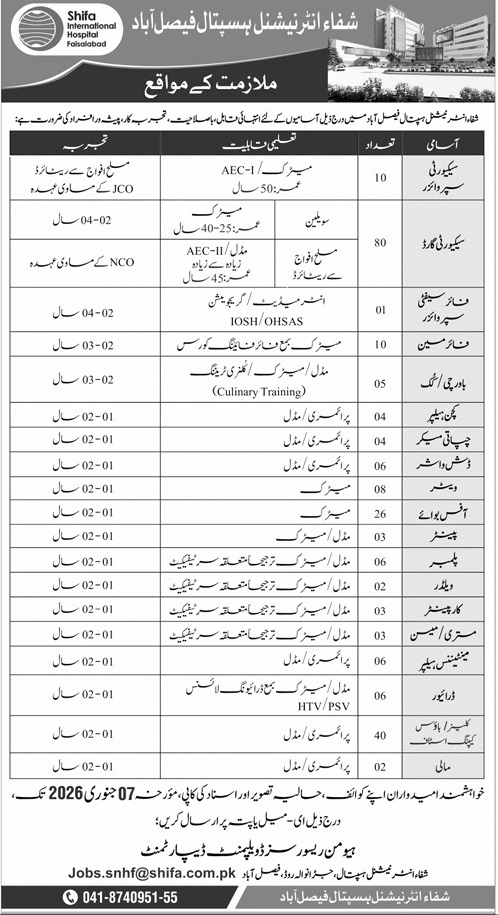 Shifa
International
Hospital
Faisalabad
شفاء انٹرنیشنل ہسپتال فیصل آباد
ملازمت کے مواقع
شفاء انٹرنیشنل ہسپتال فیصل آباد میں درج ذیل آسامیوں کے لئے انتہائی قابل، باصلاحیت، تجربہ کار، پیشہ ور افراد کی ضرورت ہے:
آسامی تعداد تعلیمی قابلیت تجربہ
سیکیورٹی سپروائزر 10 میٹرک/AEC-I عمر:50 سال مسلح افواج سے ریٹائرڈ JCO کے مساوی عہدہ
سیکیورٹی گارڈ 80 سویلین میٹرک عمر:25-40 سال 04-02 سال
مسلح افواج سے ریٹائرڈ مڈل/AEC-II زیادہ سے زیادہ عمر:45 سال NCO کے مساوی عہدہ
فائر سیفٹی سپروائزر 01 انٹرمیڈیٹ/گریجویشن IOSH/OHSAS 04-02 سال
فائر مین 10 میٹرک بمع فائر فائٹنگ کورس 03-02 سال
باورچی/کُک 05 مڈل/میٹرک/کلنری ٹریننگ (Culinary Training) 03-02 سال
کچن ہیلپر 04 پرائمری/مڈل 02-01 سال
چپاتی میکر 04 پرائمری/مڈل 02-01 سال
ڈش واشر 06 پرائمری/مڈل 02-01 سال
ویٹر 08 میٹرک 02-01 سال
آفس بوائے 26 میٹرک 02-01 سال
پینٹر 03 مڈل/میٹرک 02-01 سال
پلمبر 06 مڈل/میٹرک ترجیحاً متعلقہ سرٹیفکیٹ 02-01 سال
ویلڈر 02 مڈل/میٹرک ترجیحاً متعلقہ سرٹیفکیٹ 02-01 سال
کارپینٹر 03 مڈل/میٹرک ترجیحاً متعلقہ سرٹیفکیٹ 02-01 سال
مستری/میسن 03 مڈل/میٹرک ترجیحاً متعلقہ سرٹیفکیٹ 02-01 سال
مینٹیننس ہیلپر 06 پرائمری/مڈل 02-01 سال
ڈرائیور 06 مڈل/میٹرک بمع ڈرائیونگ لائسنس HTV/PSV 02-01 سال
کلینر/ہاؤس کیپنگ اسٹاف 40 پرائمری/مڈل 02-01 سال
مالی 02 پرائمری/مڈل 02-01 سال
خواہشمند امیدواران اپنے کوائف، حالیہ تصویر اور اسناد کی کاپی، مؤرخہ 07 جنوری 2026 تک،
درج ذیل ای-میل یا پتہ پر ارسال کریں؛
ہیومن ریسورسز ڈویلپمنٹ ڈیپارٹمنٹ
شفاء انٹرنیشنل ہسپتال، جڑانوالہ روڈ، فیصل آباد Jobs.snhf@shifa.com.pk
شفاء انٹرنیشنل ہسپتال فیصل آباد 041-8740951-55